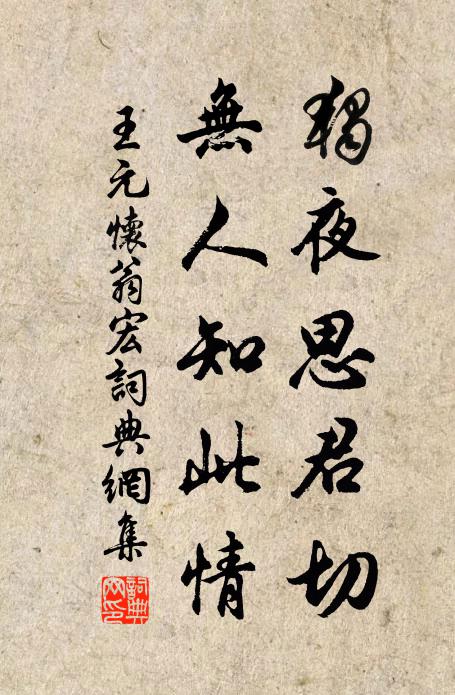 獨夜思君切
無人知此情
王元懷翁宏詞典網集
詞典
网印